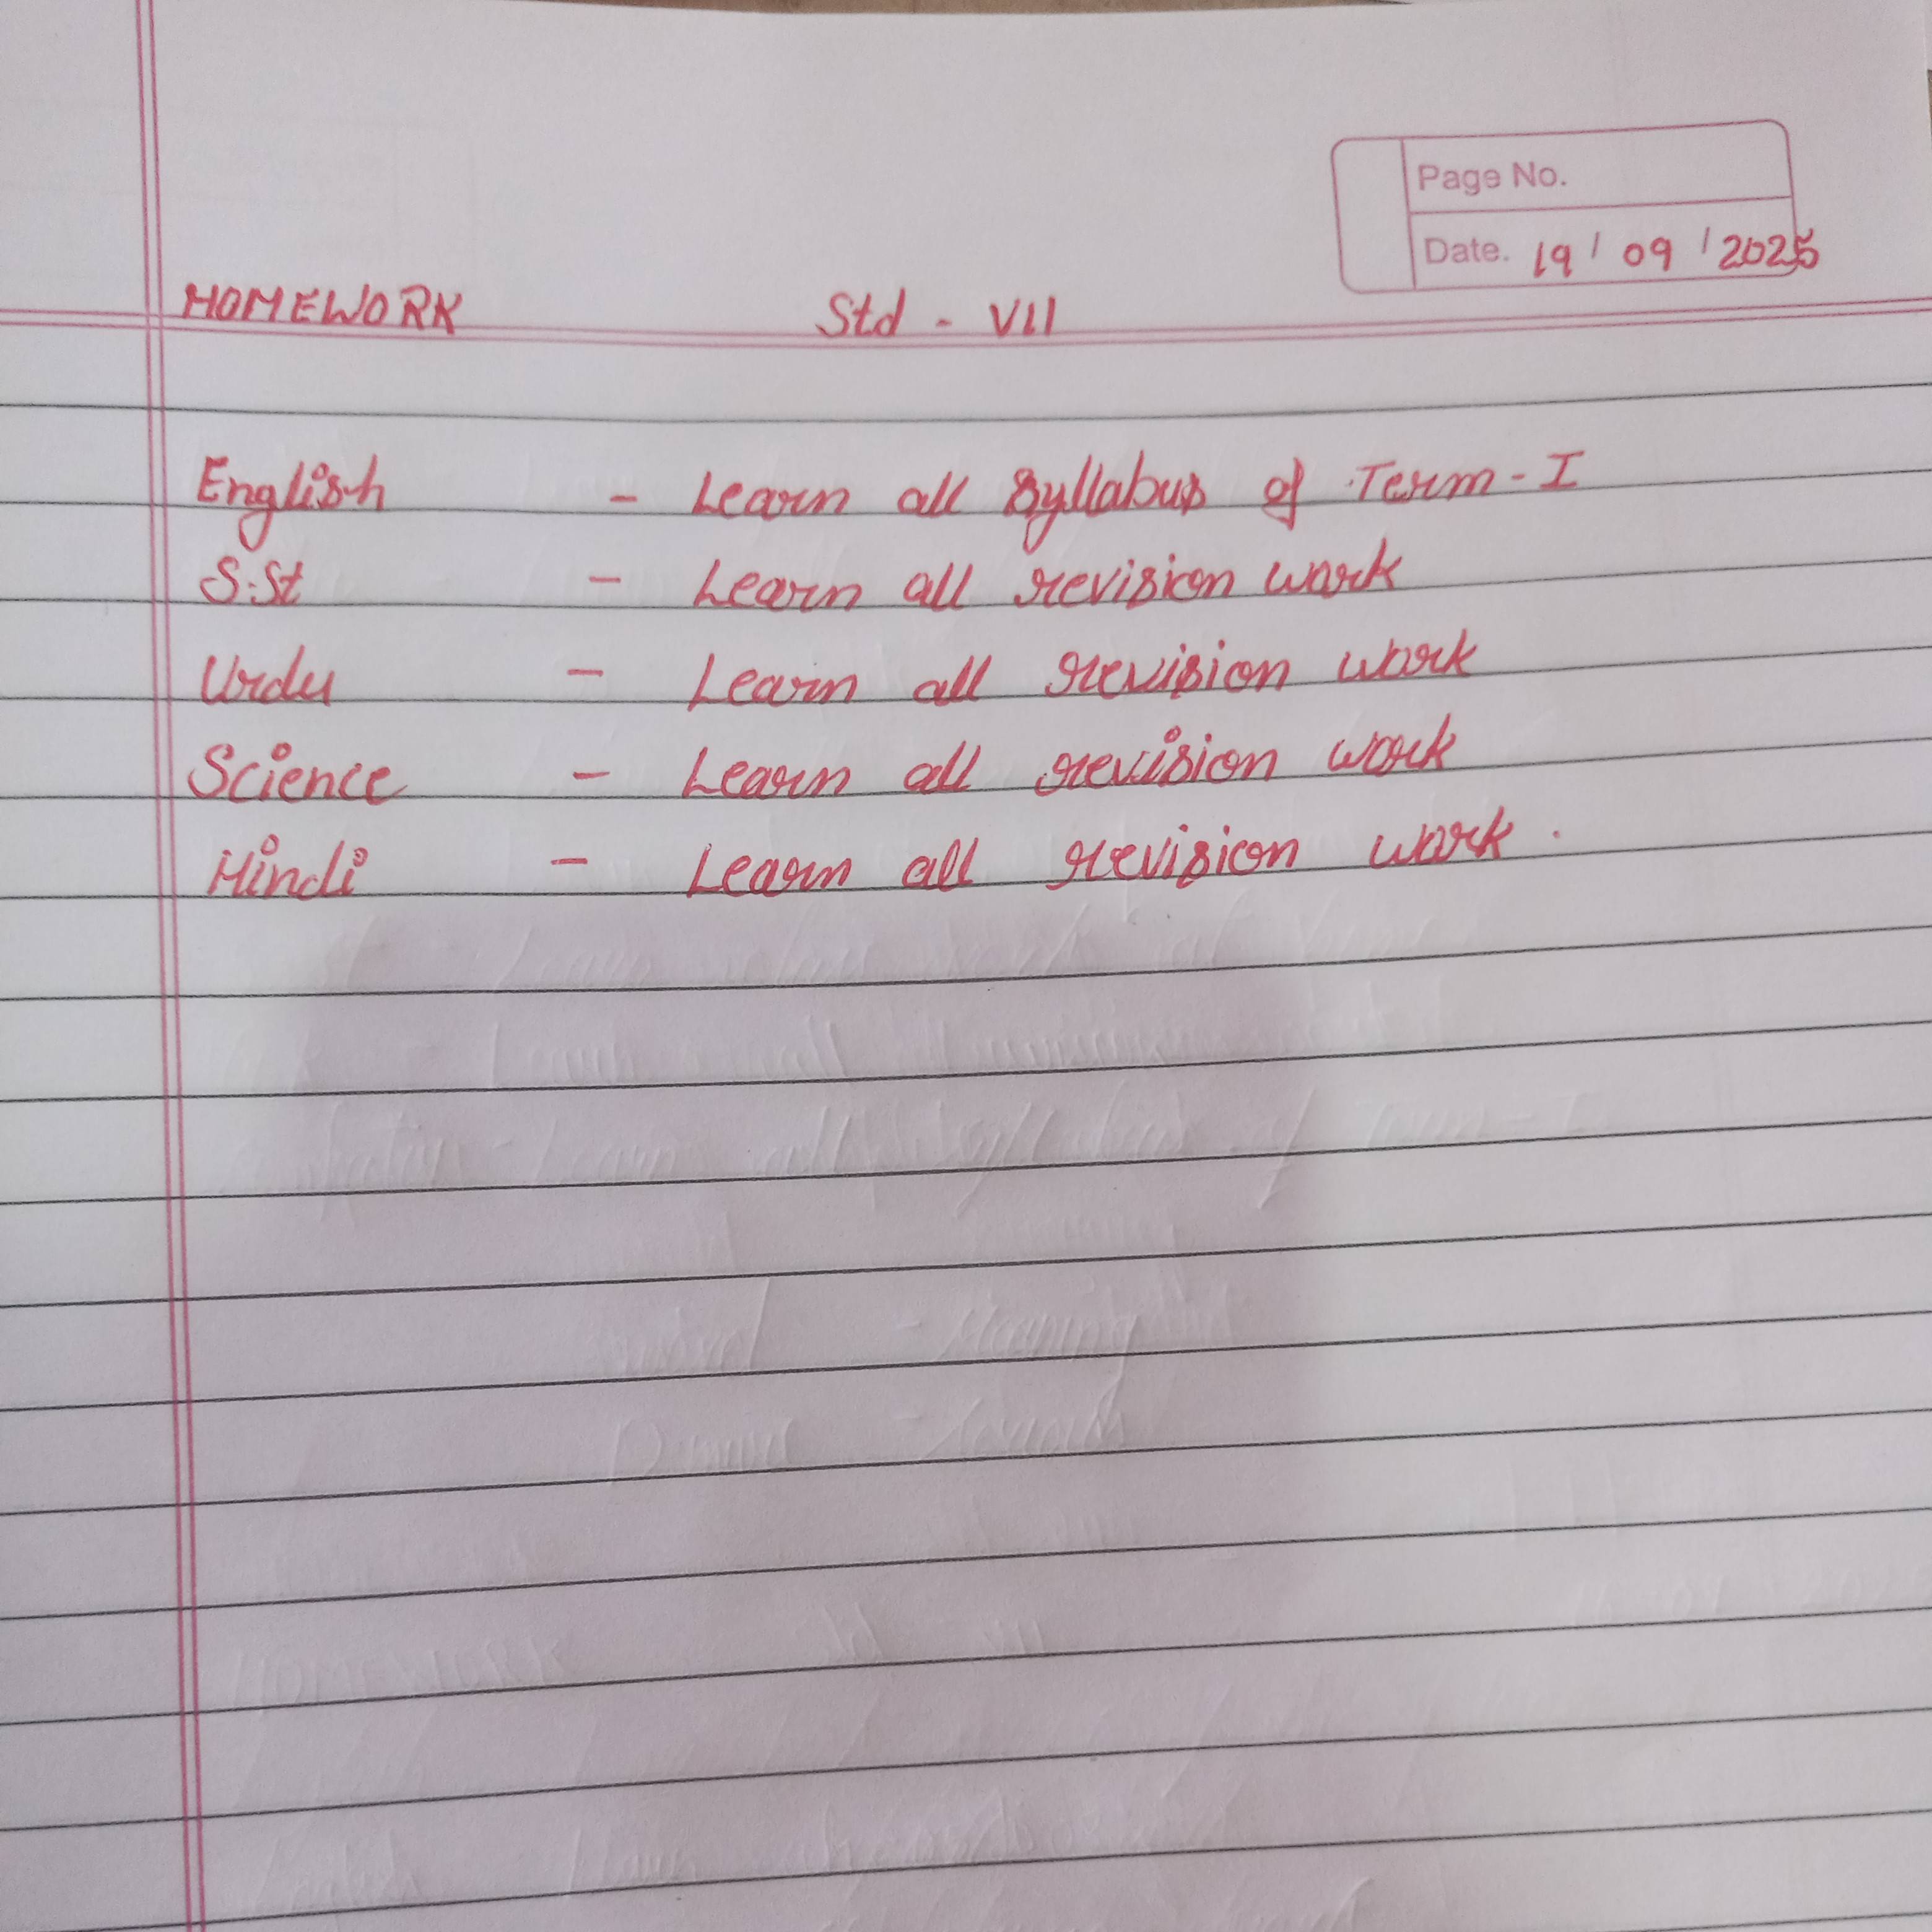 Page No.
Date. 19/09/2025
HOMEWORK Std - VII
English - Learn all Syllabus of Term-I
S.St - Learn all revision work
Urdu - Learn all revision work
Science - Learn all revision work
Hindi - Learn all revision work.